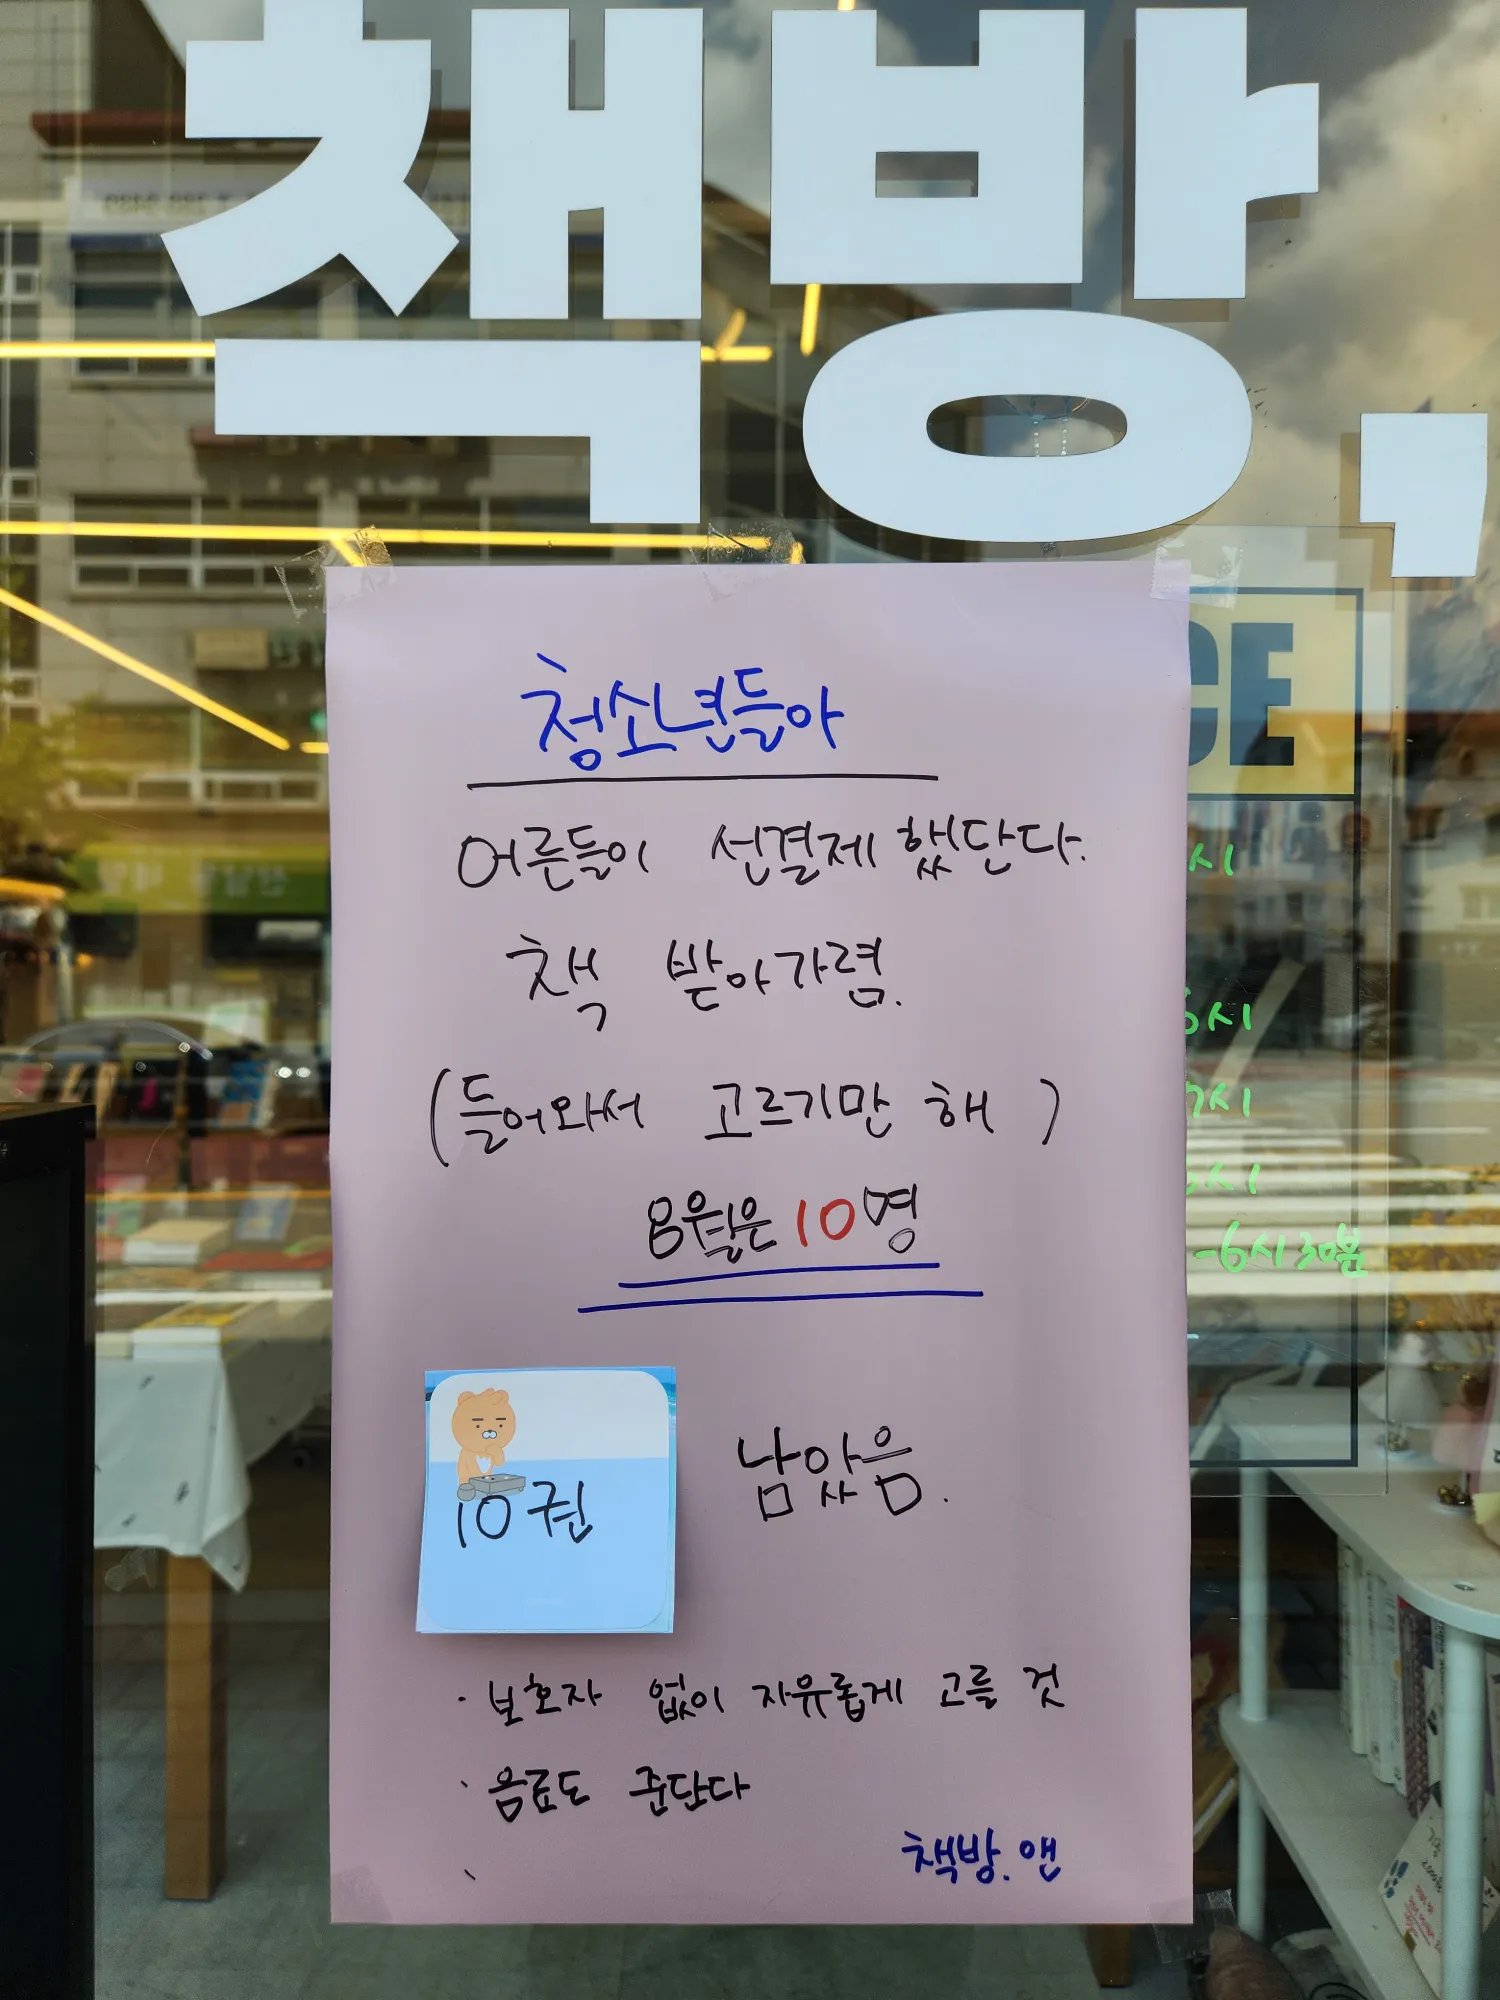 책방,
청소년들아
어른들이 선결제 했단다.
책 받아가렴.
(들어와서 고르기만 해)
8월은 10명
10권
남았음.
· 보호자 없이 자유롭게 고를 것
· 음료도 준단다
책방.앤
CE
시
6시
7시
시
-6시30분